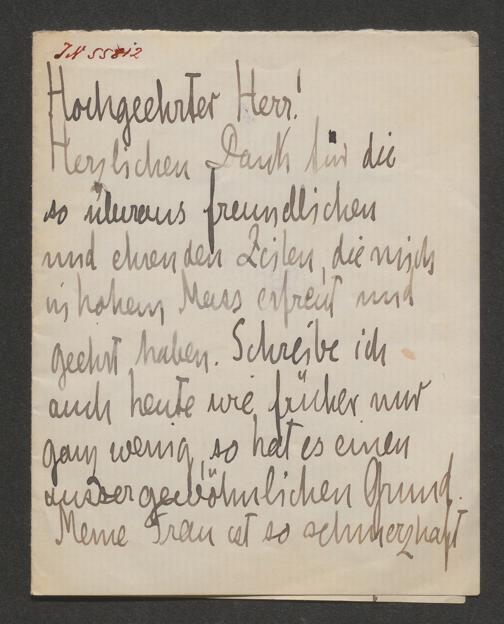 IN 55812
Hochgeehrter Herr!
Herzlichen Dank für die
so überaus freundlichen
und ehrenden Zeilen, die mich
in hohem Mass erfreut und
geehrt haben. Schreibe ich
auch heute wie früher nur
ganz wenig, so hat es einen
aussergewöhnlichen Grund.
Meine Frau ist so schmerzhaft